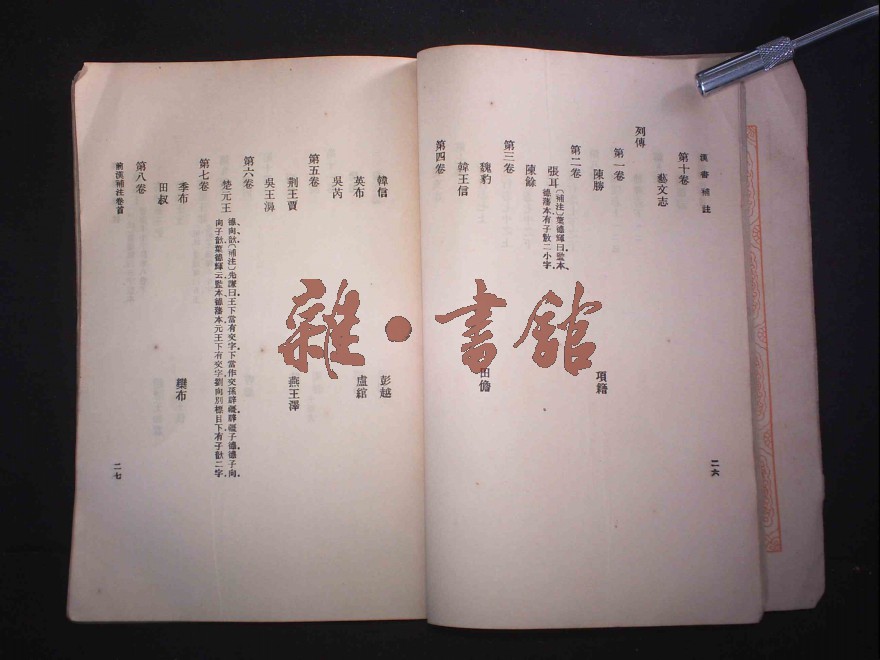 漢書補注
第十卷
藝文志
列傳
第一卷
陳勝 項籍
第二卷
張耳〔補注〕葉德輝曰監本、德藩本有子敖二小字
陳餘
第三卷
魏豹 田儋
韓王信
第四卷
二六
韓信 彭越
英布 盧綰
吳芮
第五卷
荆王賈 燕王澤
吳王濞
第六卷
楚元王
德、向、歆〔補注〕先謙曰王下當有交字下當作交孫辟彊辟彊子德德子向
向子歆葉德輝云監本、德藩本元王下有交字劉向別標目下有子歆二字
第七卷
季布 欒布
田叔
第八卷
前漢補注卷首
二七
雜·書館